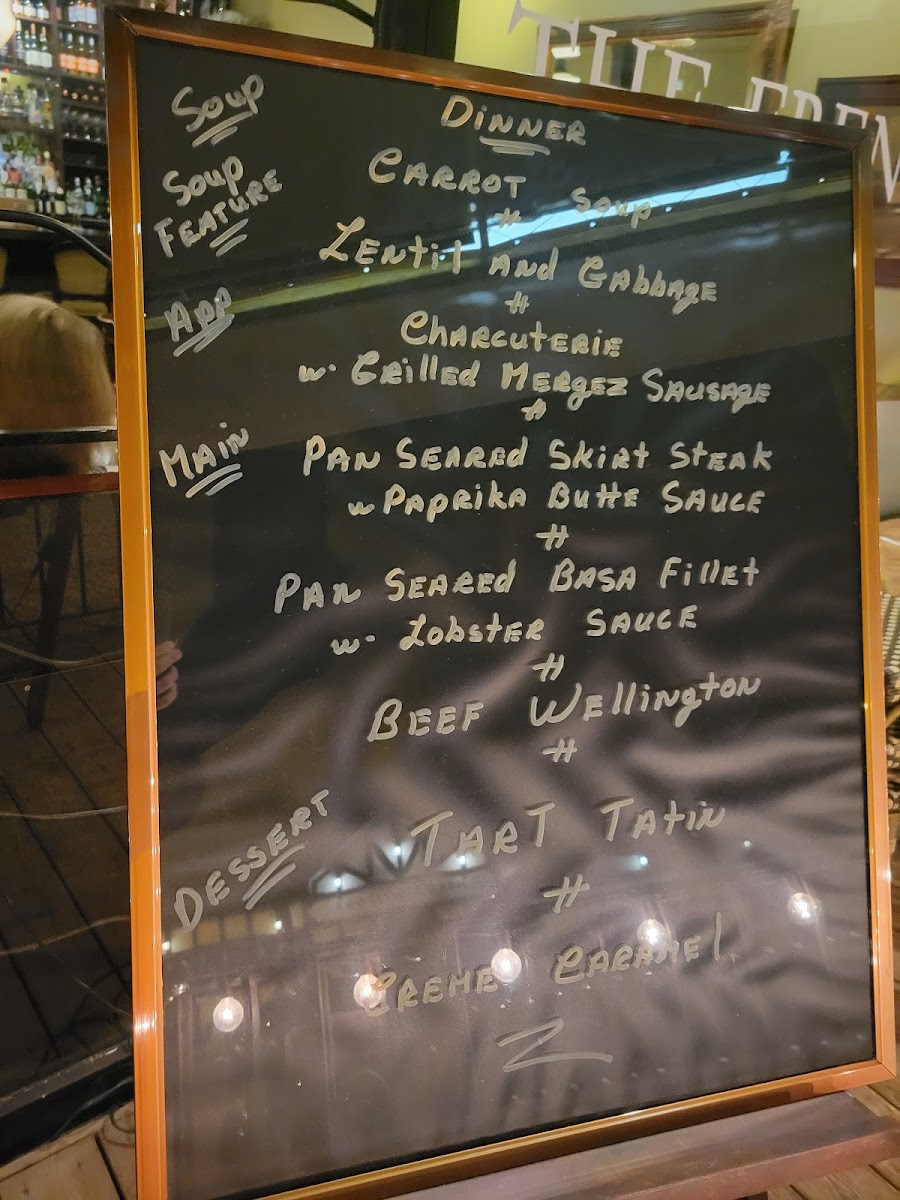 THE FREN
Dinner
Soup
Carrot Soup
#
Soup
Feature
Lentil and Cabbage
#
App
Charcuterie
w. Grilled Mergez Sausage
#
Main
Pan Seared Skirt Steak
w Paprika Butte Sauce
#
Pan Seared Basa Fillet
w. Lobster Sauce
#
Beef Wellington
#
Dessert
Tart Tatin
#
Creme Caramel